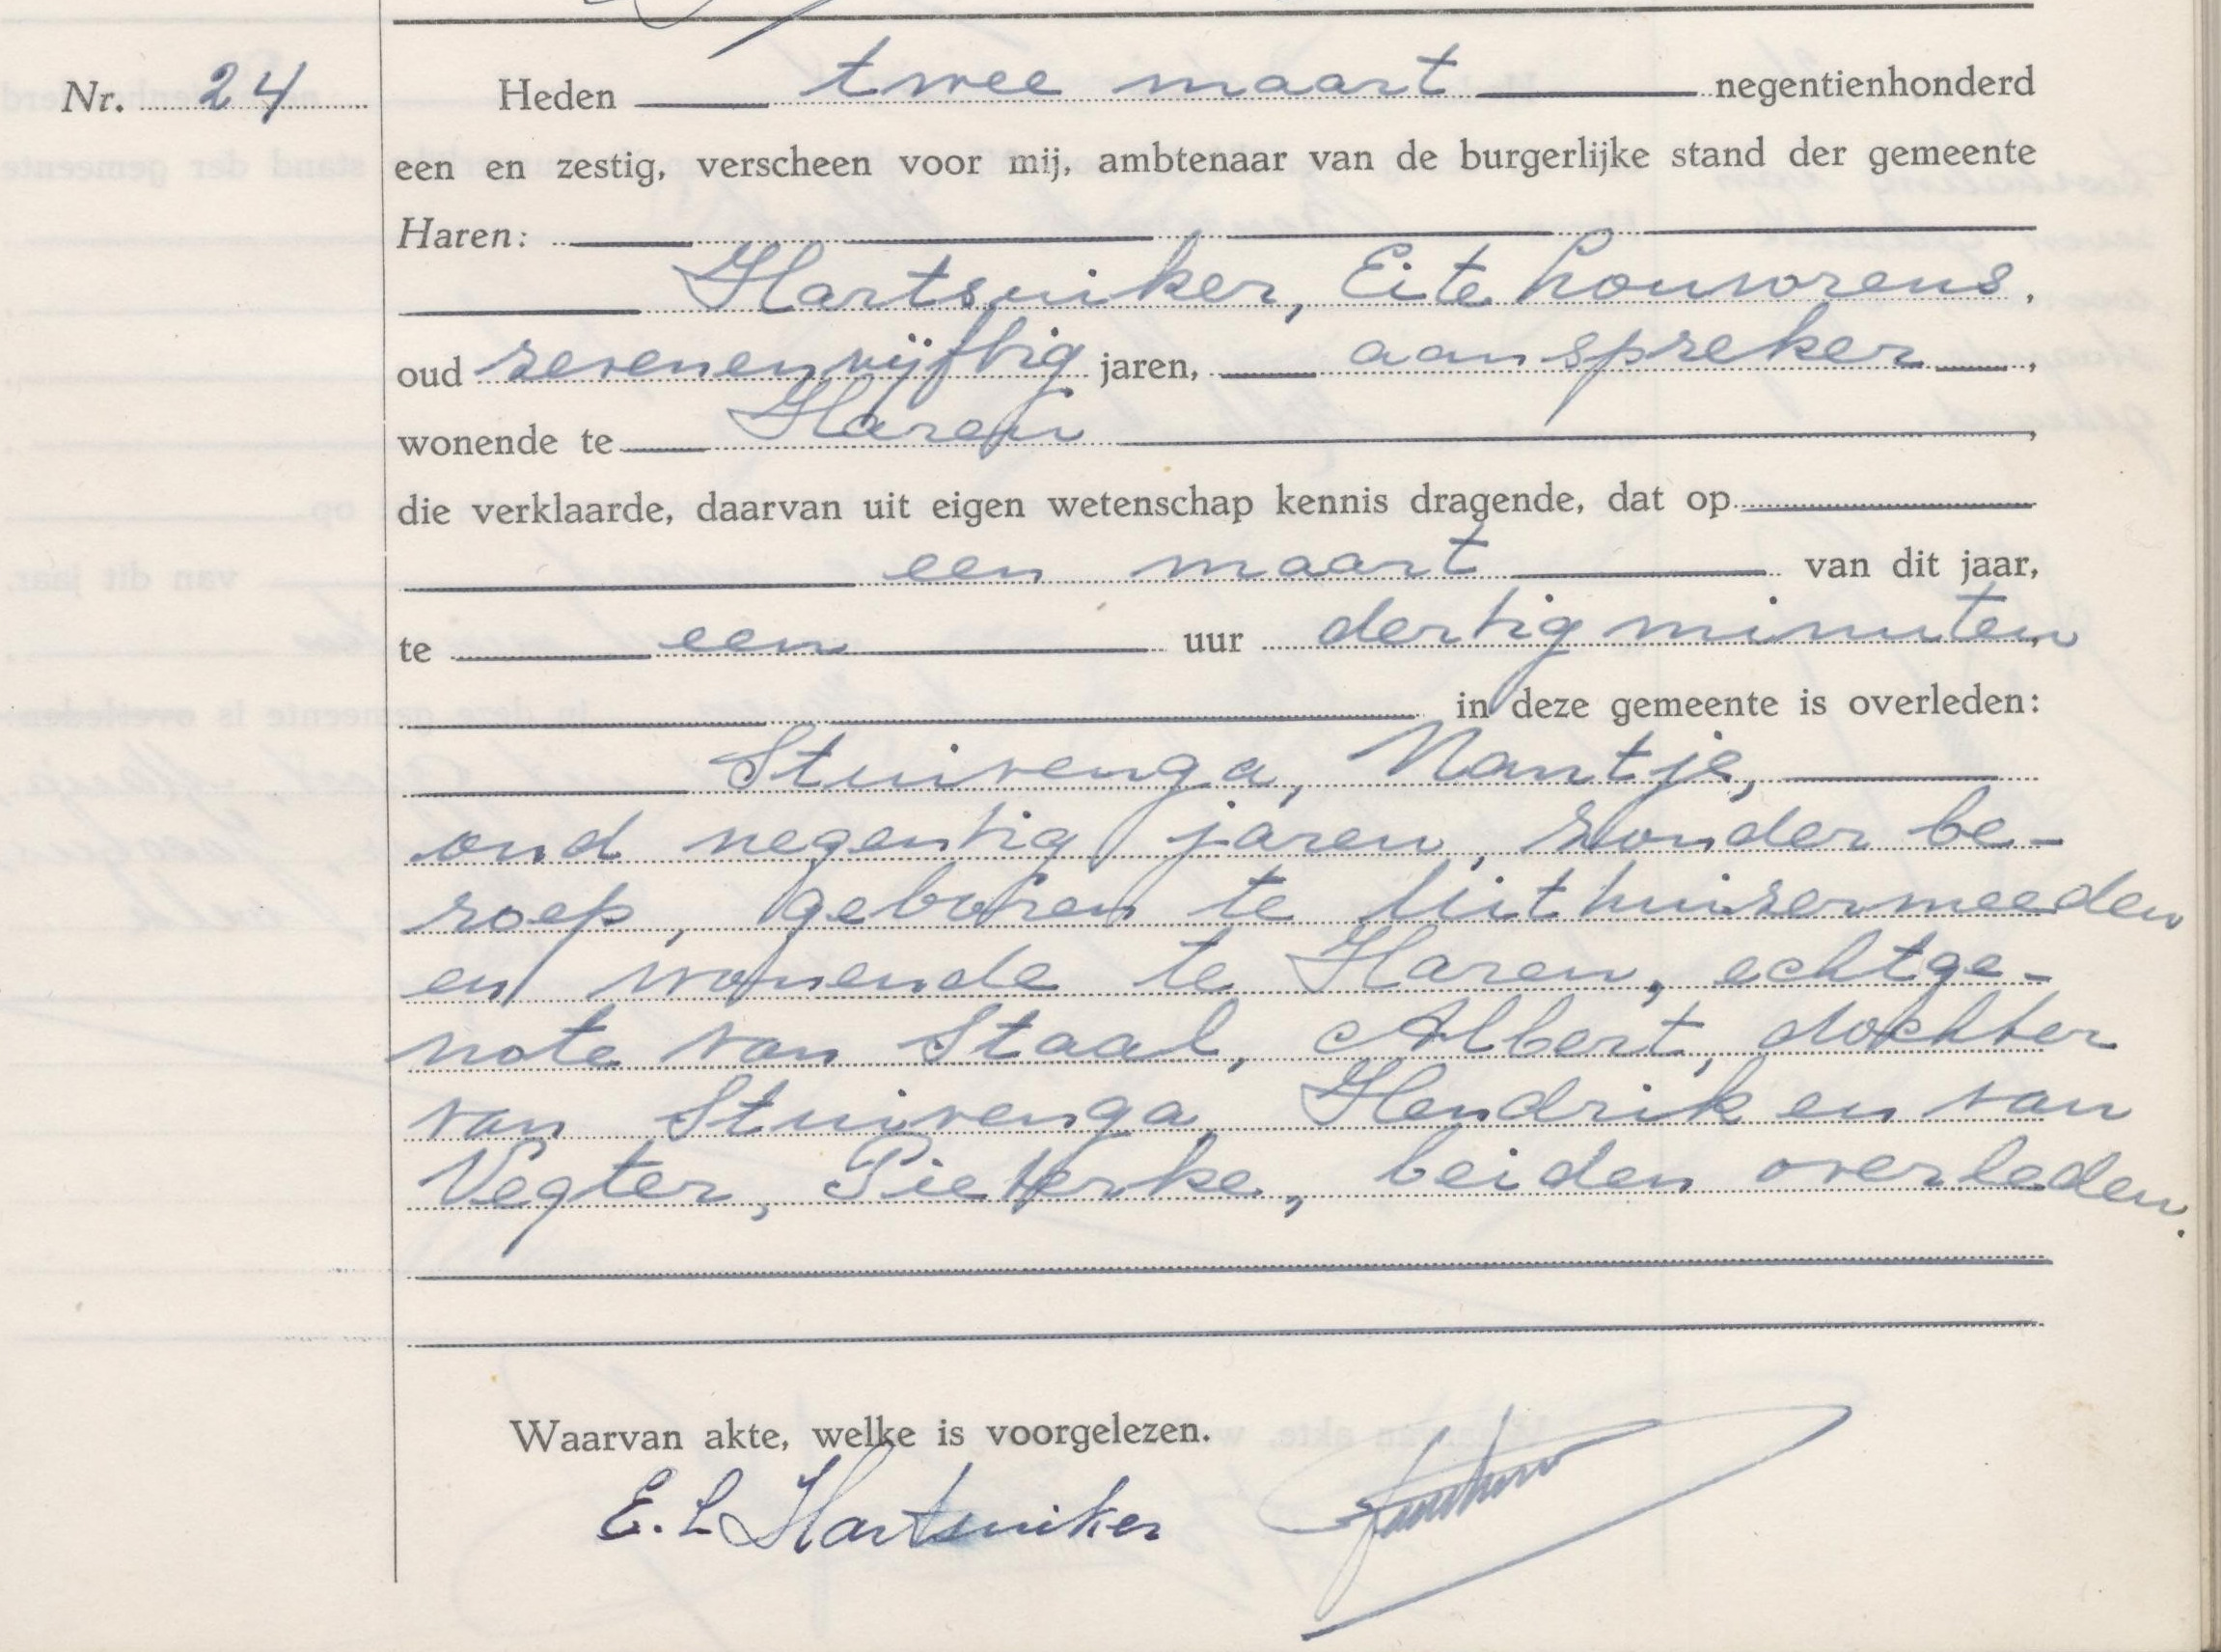 Nr. 24
Heden twee maart negentienhonderd
een en zestig, verscheen voor mij, ambtenaar van de burgerlijke stand der gemeente
Haren:
Hartsuiker, Eite Louwrens,
oud zevenenvijftig jaren, aanspreker,
wonende te Haren,
die verklaarde, daarvan uit eigen wetenschap kennis dragende, dat op
een maart van dit jaar,
te een uur dertig minuten
in deze gemeente is overleden:
Stuivenga, Nantje,
oud negentig jaren, zonder be-
roep, geboren te Uithuizermeeden
en wonende te Haren, echtge-
note van Staal, Albert, dochter
van Stuivenga, Hendrik en van
Vegter, Pieterke, beiden overleden.
Waarvan akte, welke is voorgelezen.
E. L Hartsuiker